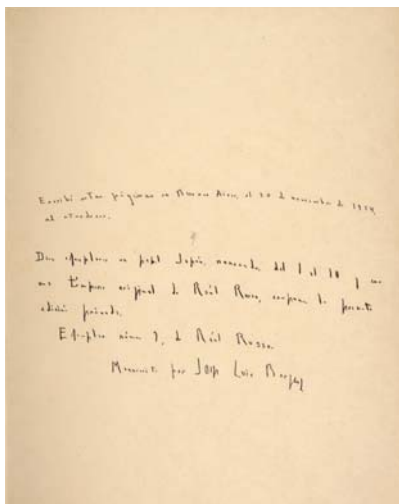 Escribí estas páginas en Buenos Aires, el 20 de noviembre de 1954,
al atardecer.
Diez ejemplares en papel Japón, numerados del 1 al 10 y con
una témpera original de Raúl Russo, componen la presente
edición privada.
Ejemplar núm 9, de Raúl Russo
Manuscrito por Jorge Luis Borges